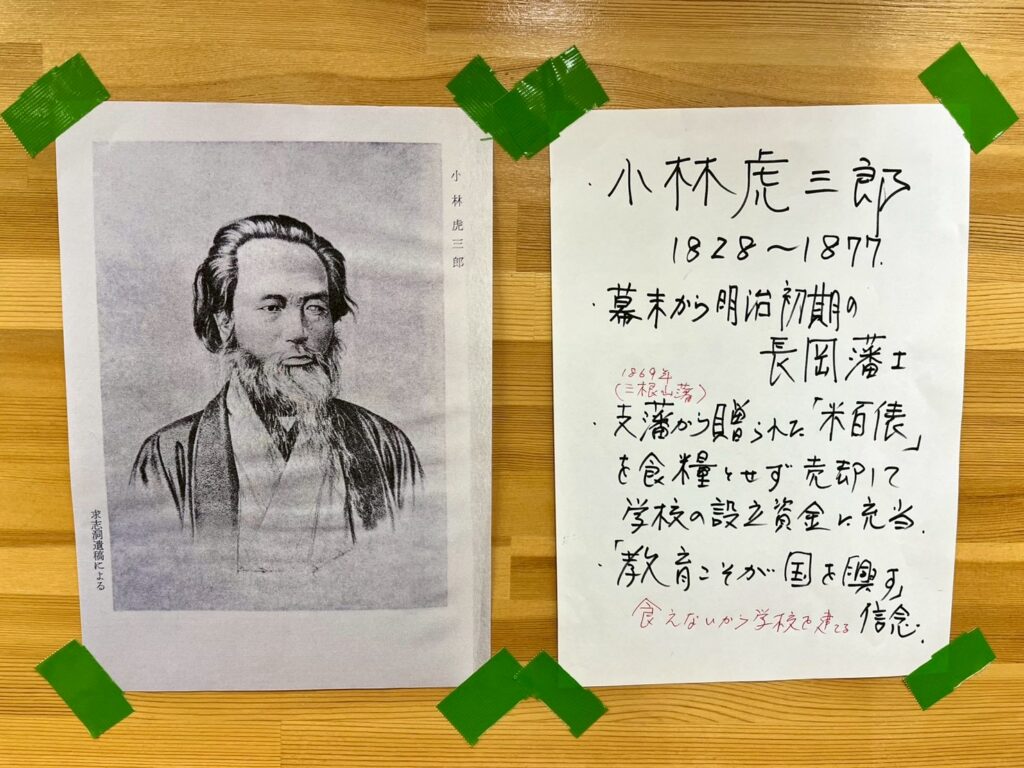 小林虎三郎
求志洞遺稿による
・小林虎三郎
1828〜1877.
・幕末から明治初期の
長岡藩士
1869年
(三根山藩)
・支藩から贈られた「米百俵」
を食糧とせず売却して
学校の設立資金に充当.
・「教育こそが国を興す」
信念.
食えないから学校を建てる